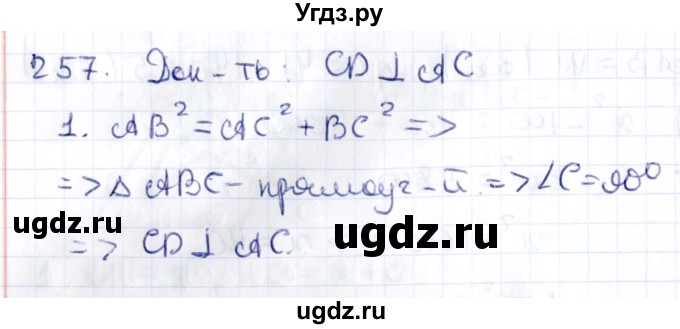 Угдз.ру
257. Док-ть: CD⊥AC
1. AB²=AC²+BC² =>
=> △ABC - прямоуг-й. => ∠C=90°
ugdz.ru
ugdz.ru
=> CD⊥AC.
ugdz.ru
ugdz.ru